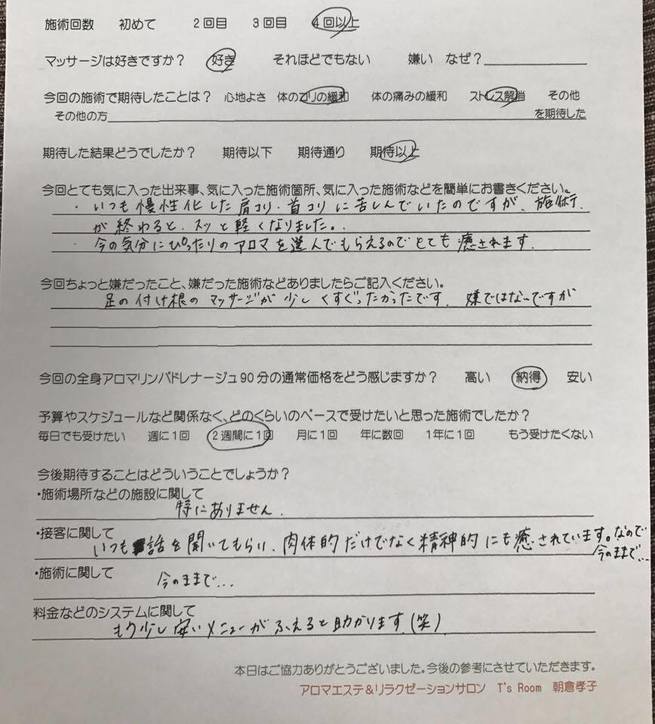 施術回数 初めて 2回目 3回目 4回以上
マッサージは好きですか? 好き それほどでもない 嫌い なぜ?
今回の施術で期待したことは? 心地よさ 体のコリの緩和 体の痛みの緩和 ストレス解消 その他
その他の方 を期待した
期待した結果どうでしたか? 期待以下 期待通り 期待以上
今回とても気に入った出来事、気に入った施術箇所、気に入った施術などを簡単にお書きください。
・いつも慢性化した肩コリ・首コリに苦しんでいたのですが、施術
が終わると、スッと軽くなりました。
・今の気分にぴったりのアロマを選んでもらえるのでとても癒されます。
今回ちょっと嫌だったこと、嫌だった施術などありましたらご記入ください。
足の付け根のマッサージが少しくすぐったかったです。嫌ではないですが
今回の全身アロマリンパドレナージュ90分の通常価格をどう感じますか? 高い 納得 安い
予算やスケジュールなど関係なく、どのくらいのペースで受けたいと思った施術でしたか?
毎日でも受けたい 週に1回 2週間に1回 月に1回 年に数回 1年に1回 もう受けたくない
今後期待することはどういうことでしょうか?
・施術場所などの施設に関して
特にありません。
・接客に関して
いつも話を聞いてもらい、肉体的だけでなく精神的にも癒されています。なので
今のままで…
・施術に関して
今のままで…
料金などのシステムに関して
もう少し安いメニューがふえると助かります(笑)
本日はご協力ありがとうございました。今後の参考にさせていただきます。
アロマエステ&リラクゼーションサロン T's Room 朝倉孝子